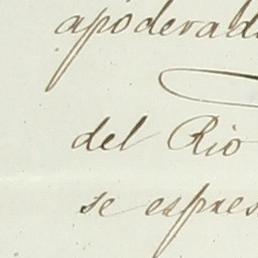 apoderad
del Rio
se espres